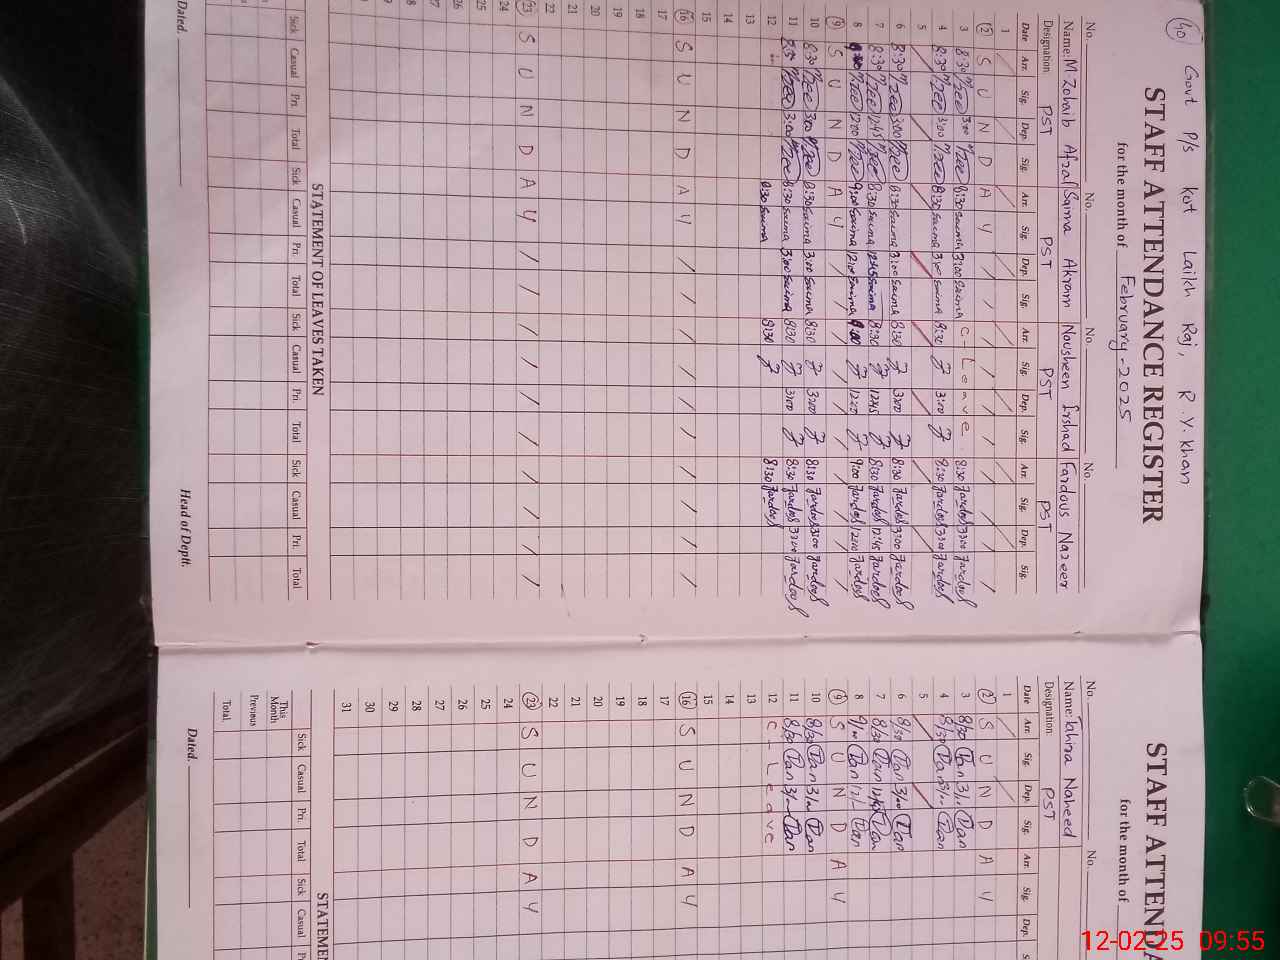 40
Govt P/s kot Laikh Raj, R.Y.Khan
STAFF ATTENDANCE REGISTER
for the month of February-2025
No. No. No. No.
Name: M Zohaib Afzal Saima Akram Nousheen Irshad Fardous Nazeer
Designation PST PST PST PST
Date Arr. Sig. Dep. Sig. Arr. Sig. Dep. Sig. Arr. Sig. Dep. Sig. Arr. Sig. Dep. Sig.
1
2 S U N D A Y
3 8:30 3:00 8:30 Saima 3:00 Saima C-Leave 8:30 Fardos 3:00 Fardos
4 8:30 3:00 8:30 Saima 3:00 Saima 8:30 3:00 8:30 Fardos 3:00 Fardos
5
6 8:30 3:00 8:30 Saima 3:00 Saima 8:30 3:00 8:30 Fardos 3:00 Fardos
7 8:30 12:45 8:30 Saima 12:45 Saima 8:30 12:45 8:30 Fardos 12:45 Fardos
8 12:00 9:00 Saima 12:00 Saima 12:00 9:00 Fardos 12:00 Fardos
9 S U N D A Y
10 8:30 3:00 8:30 Saima 3:00 Saima 8:30 3:00 8:30 Fardos 3:00 Fardos
11 8:30 3:00 8:30 Saima 3:00 Saima 8:30 3:00 8:30 Fardos 3:00 Fardos
12 8:30 Saima 8:30 8:30 Fardos
13
14
15
16 S U N D A Y
17
18
19
20
21
22
23 S U N D A Y
24
25
26
27
STATEMENT OF LEAVES TAKEN
Sick Casual Pri. Total Sick Casual Pri. Total Sick Casual Pri. Total Sick Casual Pri. Total
Dated. Head of Deptt.
STAFF ATTENDA
for the month of
No. No.
Name: Tahira Naheed
Designation PST
Date Arr. Sig. Dep. Sig. Arr. Sig. Dep.
1
2 S U N D A Y
3 8/30 3/..
4 8/30 3/..
5
6 8/30 3/00
7 8/30 12/45
8 9/00 12/-
9 S U N D A Y
10 8/30 3/00
11 8/30 3/00
12 C-Leave
13
14
15
16 S U N D A Y
17
18
19
20
21
22
23 S U N D A Y
24
25
26
27
28
29
30
31
STATEMEN
Sick Casual Pri Total Sick Casual
This Month
Previous
Total.
Dated.
12-02-25 09:55